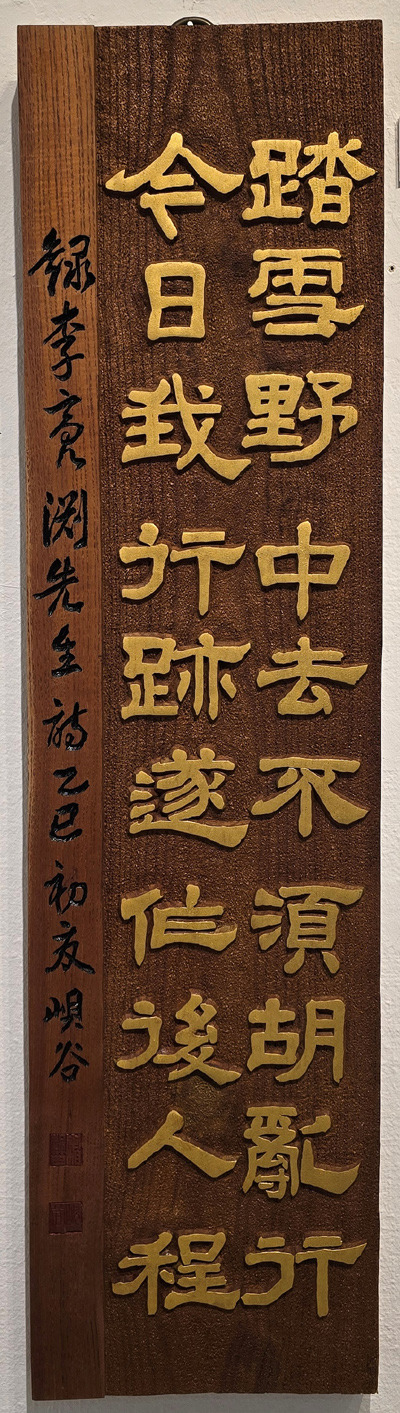 踏雪野中去不須胡亂行
今日我行跡遂作後人程
錄李亮淵先生詩乙巳初夏峴谷